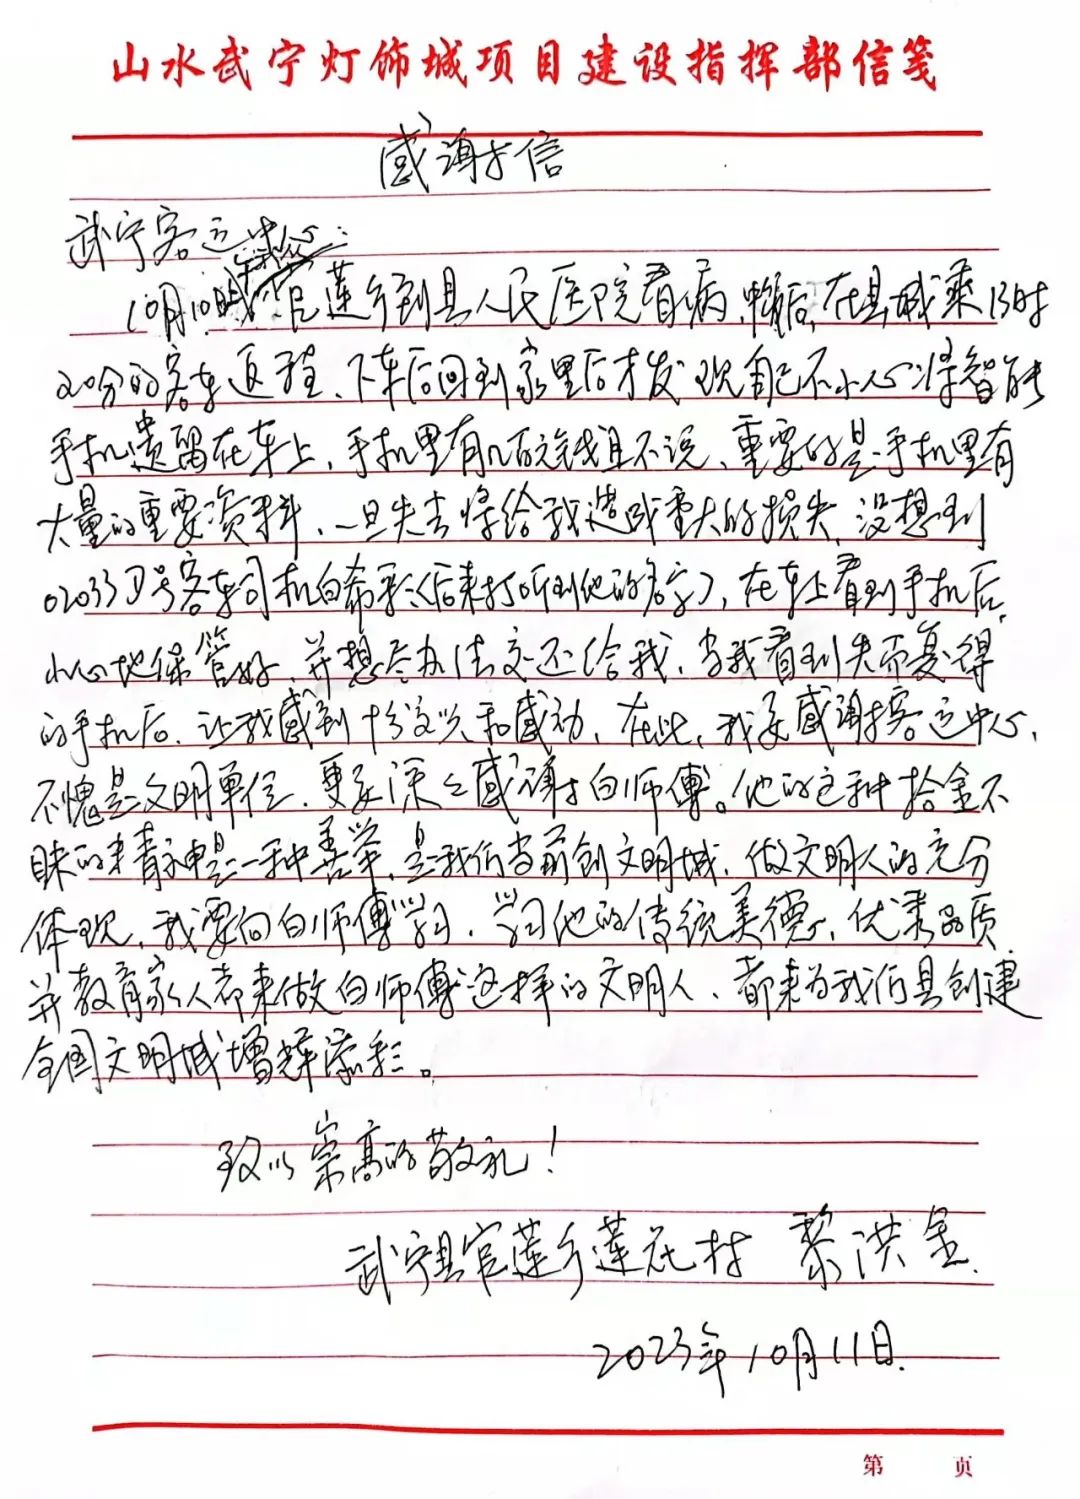 山水武宁灯饰城项目建设指挥部信笺
感谢信
武宁客运中心:
10月10日我官莲乡到县人民医院看病,中午后,在县城乘13时
20分的客车返程、下车后回到家里后才发现自己不小心将智能
手机遗留在车上,手机里有几百元钱且不说、重要的是手机里有
大量的重要资料、一旦失去将给我造成重大的损失,没想到
02033D号客车司机白希彩(后来打听到他的名字),在车上看到手机后,
小心地保管好,并想尽办法交还给我,当我看到失而复得
的手机后,让我感到十分高兴和感动,在此,我要感谢客运中心,
不愧是文明单位,更要深深感谢白师傅。他的这种拾金不
昧的精神是一种善举,是我们当前创文明城,做文明人的充分
体现,我要向白师傅学习,学习他的传统美德,优秀品质,
并教育家人都来做白师傅这样的文明人、都来为我们县创建
全国文明城增辉添彩。
致以崇高的敬礼!
武宁县官莲乡莲花村 黎洪金
2023年10月11日
第 页